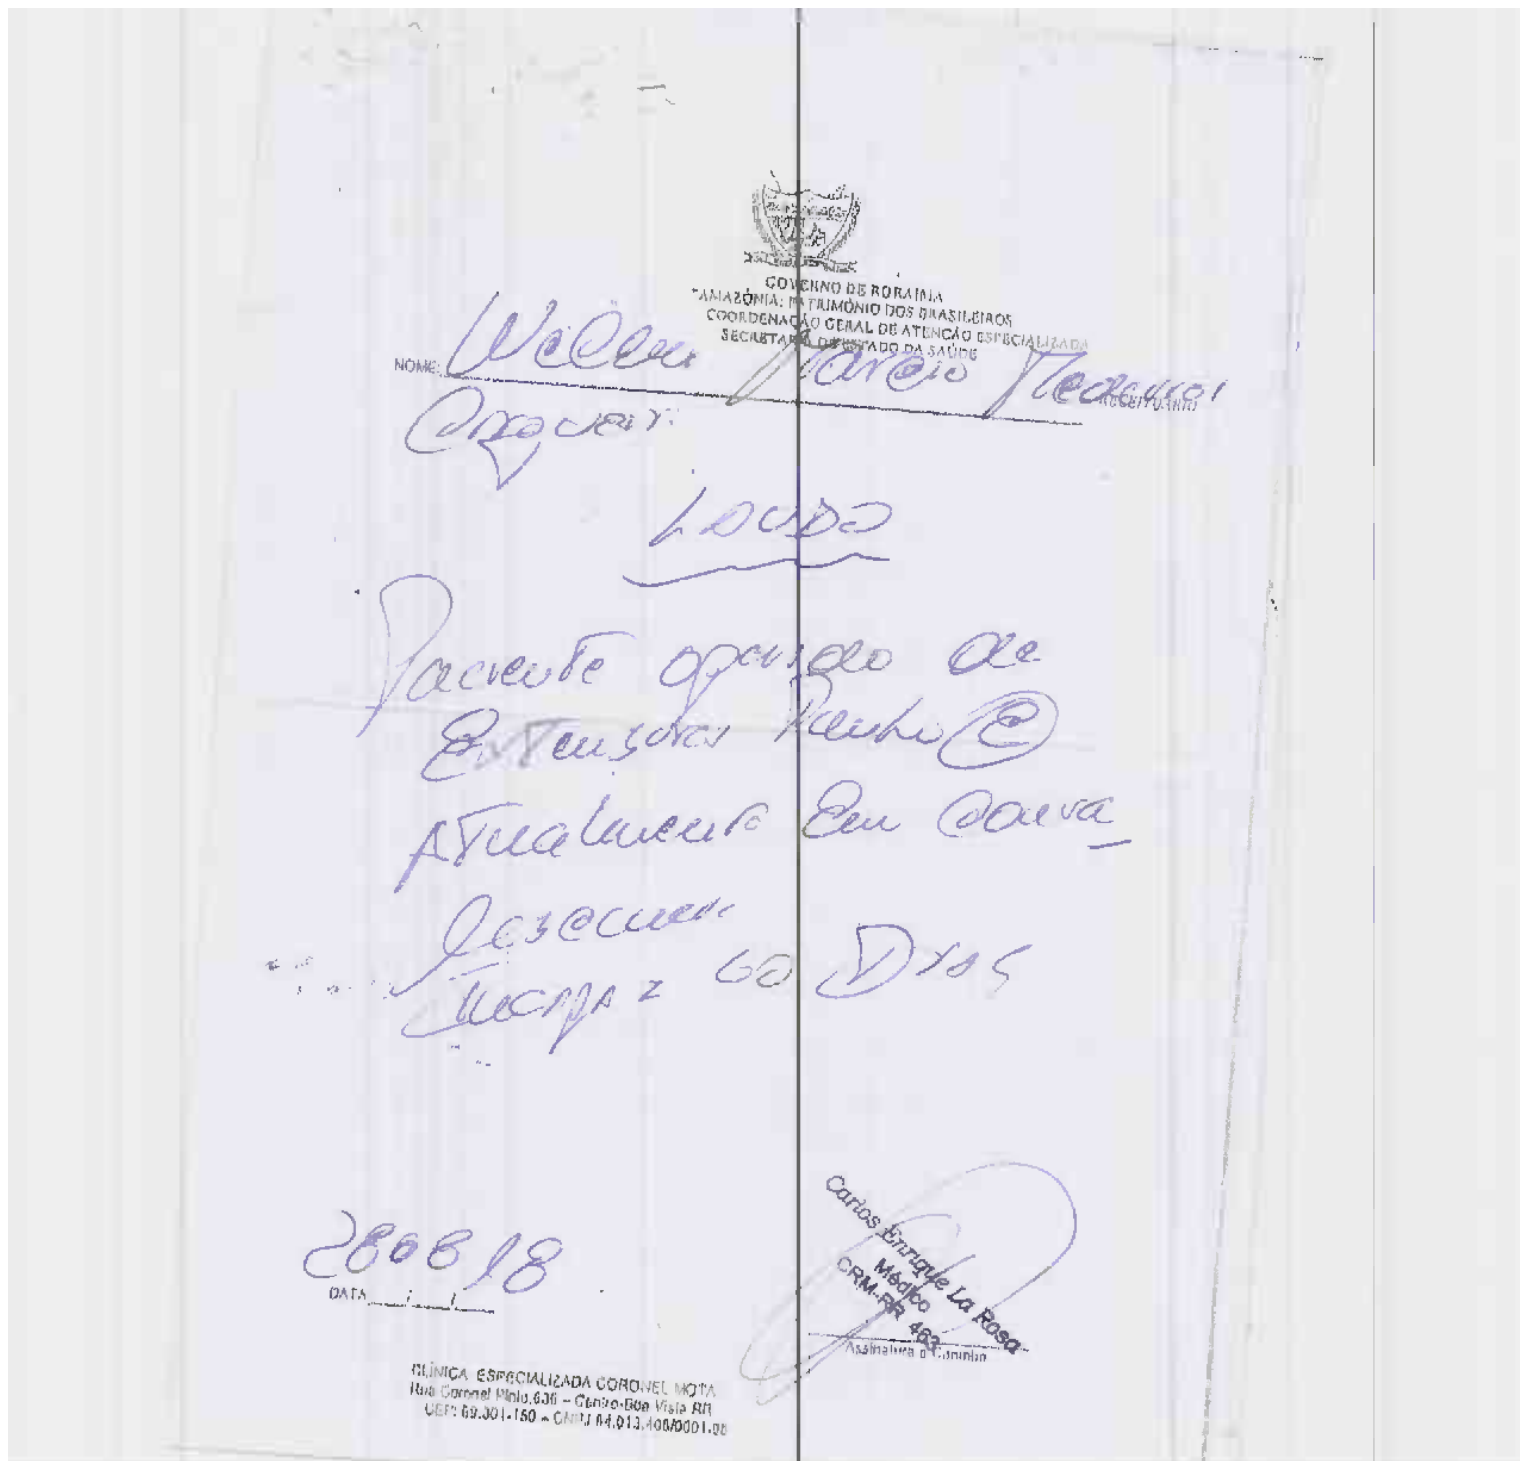 GOVERNO DE RORAIMA
"AMAZÔNIA: PATRIMÔNIO DOS BRASILEIROS
COORDENAÇÃO GERAL DE ATENÇÃO ESPECIALIZADA
SECRETARIA DE ESTADO DA SAÚDE
NOME:
RECEITUÁRIO
LAUDO
Paciente operado de
Extensores Punho E
Atualmente Em Conva
Incapaz 60 Dias
280818
DATA / /
Carlos Enrique La Rosa
Médico
CRM-RR 463
Assinatura e Carimbo
CLÍNICA ESPECIALIZADA CORONEL MOTA
Rua Coronel Pinto, 636 – Centro-Boa Vista RR
CEP: 69.301-150 –